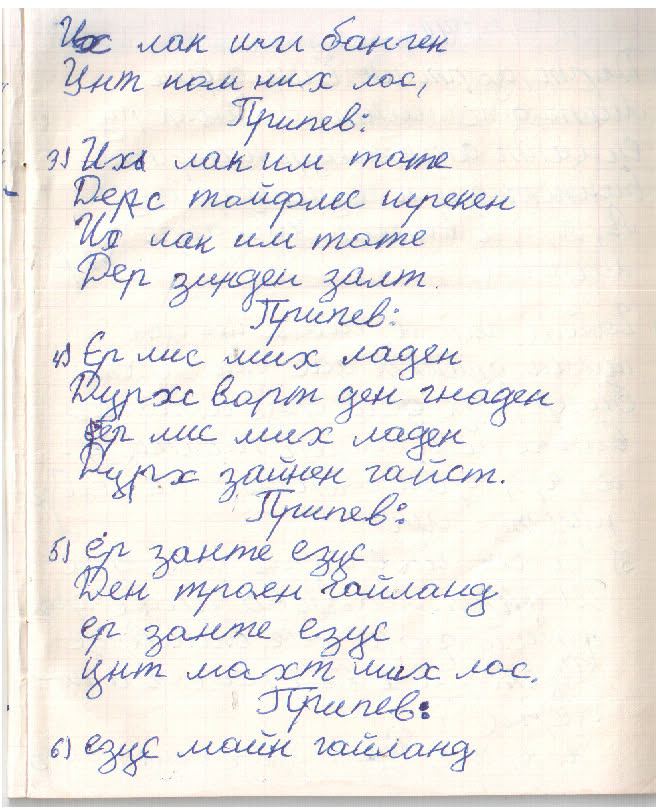 Их лак ини банген
Унт ком них лос,
Припев:
3) Их лак им тоте
Дерс тайфлес шрекен
Их лак им тоте
Дер зинден залт.
Припев:
4) Ер лис мих ладен
Дурхс ворт ден гнаден
ер лис мих ладен
Дурх зайнен гайст.
Припев:
5) ер занте езус
Ден троен гайланд
ер занте езус
унт махт мих лос.
Припев:
6) езус майн гайланд